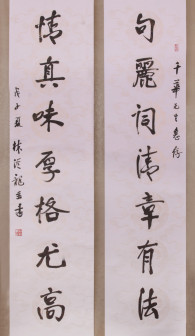 華先生惠
句麗詞清章有法
情真味厚格尤高
子夏 林從龍